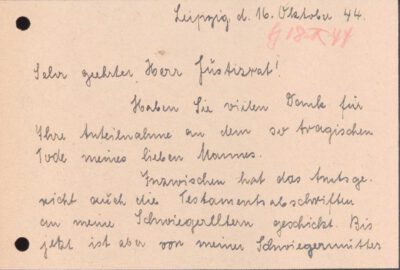 Leipzig d. 16. Oktober 44.
Sehr geehrter Herr Justizrat!
Haben Sie vielen Dank für
Ihre Anteilnahme an dem so tragischen
Tode meines lieben Mannes.
Inzwischen hat das Amtsge-
richt auch die Testamentsabschriften
an meine Schwiegereltern geschickt. Bis
jetzt ist aber von meiner Schwiegermutter